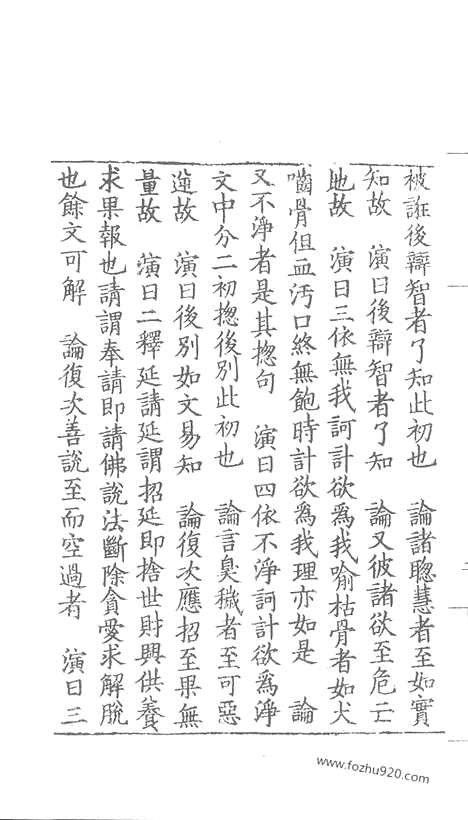 被誑後辯智者了知此初也　論諸聰慧者至如實
知故　演曰後辯智者了知　論又彼諸欲至危亡
地故　演曰三依無我訶計欲爲我喻枯骨者如犬
嚙骨但血汚口終無飽時計欲爲我理亦如是　論
又不淨者是其揔句　演曰四依不淨訶計欲爲淨
文中分二初揔後別此初也　論言臭穢者至可惡
逆故　演曰後別如文易知　論復次應招至果無
量故　演曰二釋延請延謂招延即捨世財興供養
求果報也請謂奉請即請佛說法斷除貪愛求解脫
也餘文可解　論復次善說至而空過者　演曰三
www.fozhu920.com